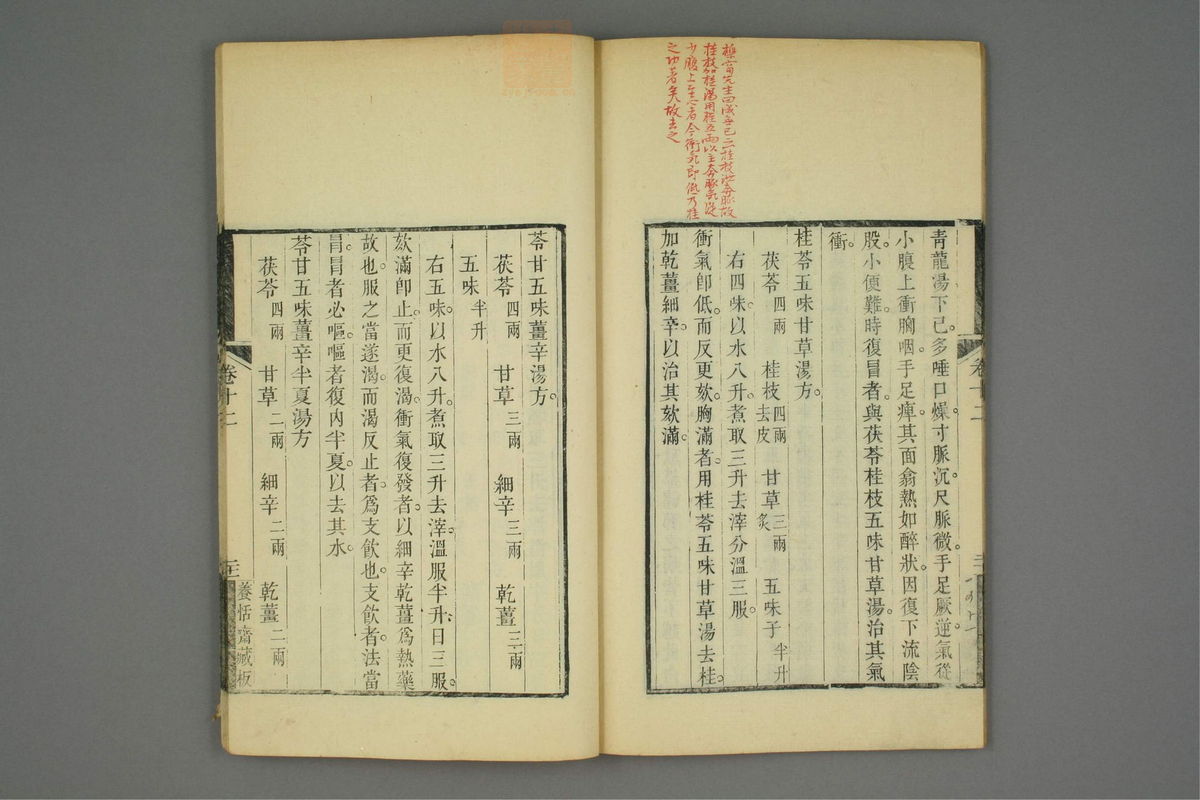 櫟窗先生曰成無己云桂枝泄奔豚故
桂枝加桂湯用桂五兩以主奔豚氣從
少腹上至心者今衝氣即低乃桂
之功著矣故去之
卷十二
青龍湯下已。多唾口燥。寸脈沉。尺脈微。手足厥逆。氣從
小腹上衝胸咽。手足痺。其面翕熱如醉狀。因復下流陰
股。小便難。時復冒者。與茯苓桂枝五味甘草湯。治其氣
衝。
桂苓五味甘草湯方。
茯苓四兩 桂枝四兩去皮 甘草三兩炙 五味子半升
右四味。以水八升。煮取三升。去滓。分溫三服。
衝氣卽低。而反更欬。胸滿者。用桂苓五味甘草湯去桂。
加乾薑細辛。以治其欬滿。
苓甘五味薑辛湯方。
茯苓四兩 甘草三兩 細辛三兩 乾薑三兩
五味半升
右五味。以水八升。煮取三升。去滓。溫服半升。日三服。
欬滿卽止。而更復渴。衝氣復發者。以細辛乾薑爲熱藥
故也。服之當遂渴。而渴反止者。爲支飮也。支飮者。法當
冒。冒者必嘔。嘔者復內半夏。以去其水。
苓甘五味薑辛半夏湯方
茯苓四兩 甘草二兩 細辛二兩 乾薑二兩
卷十二
養恬齋藏板